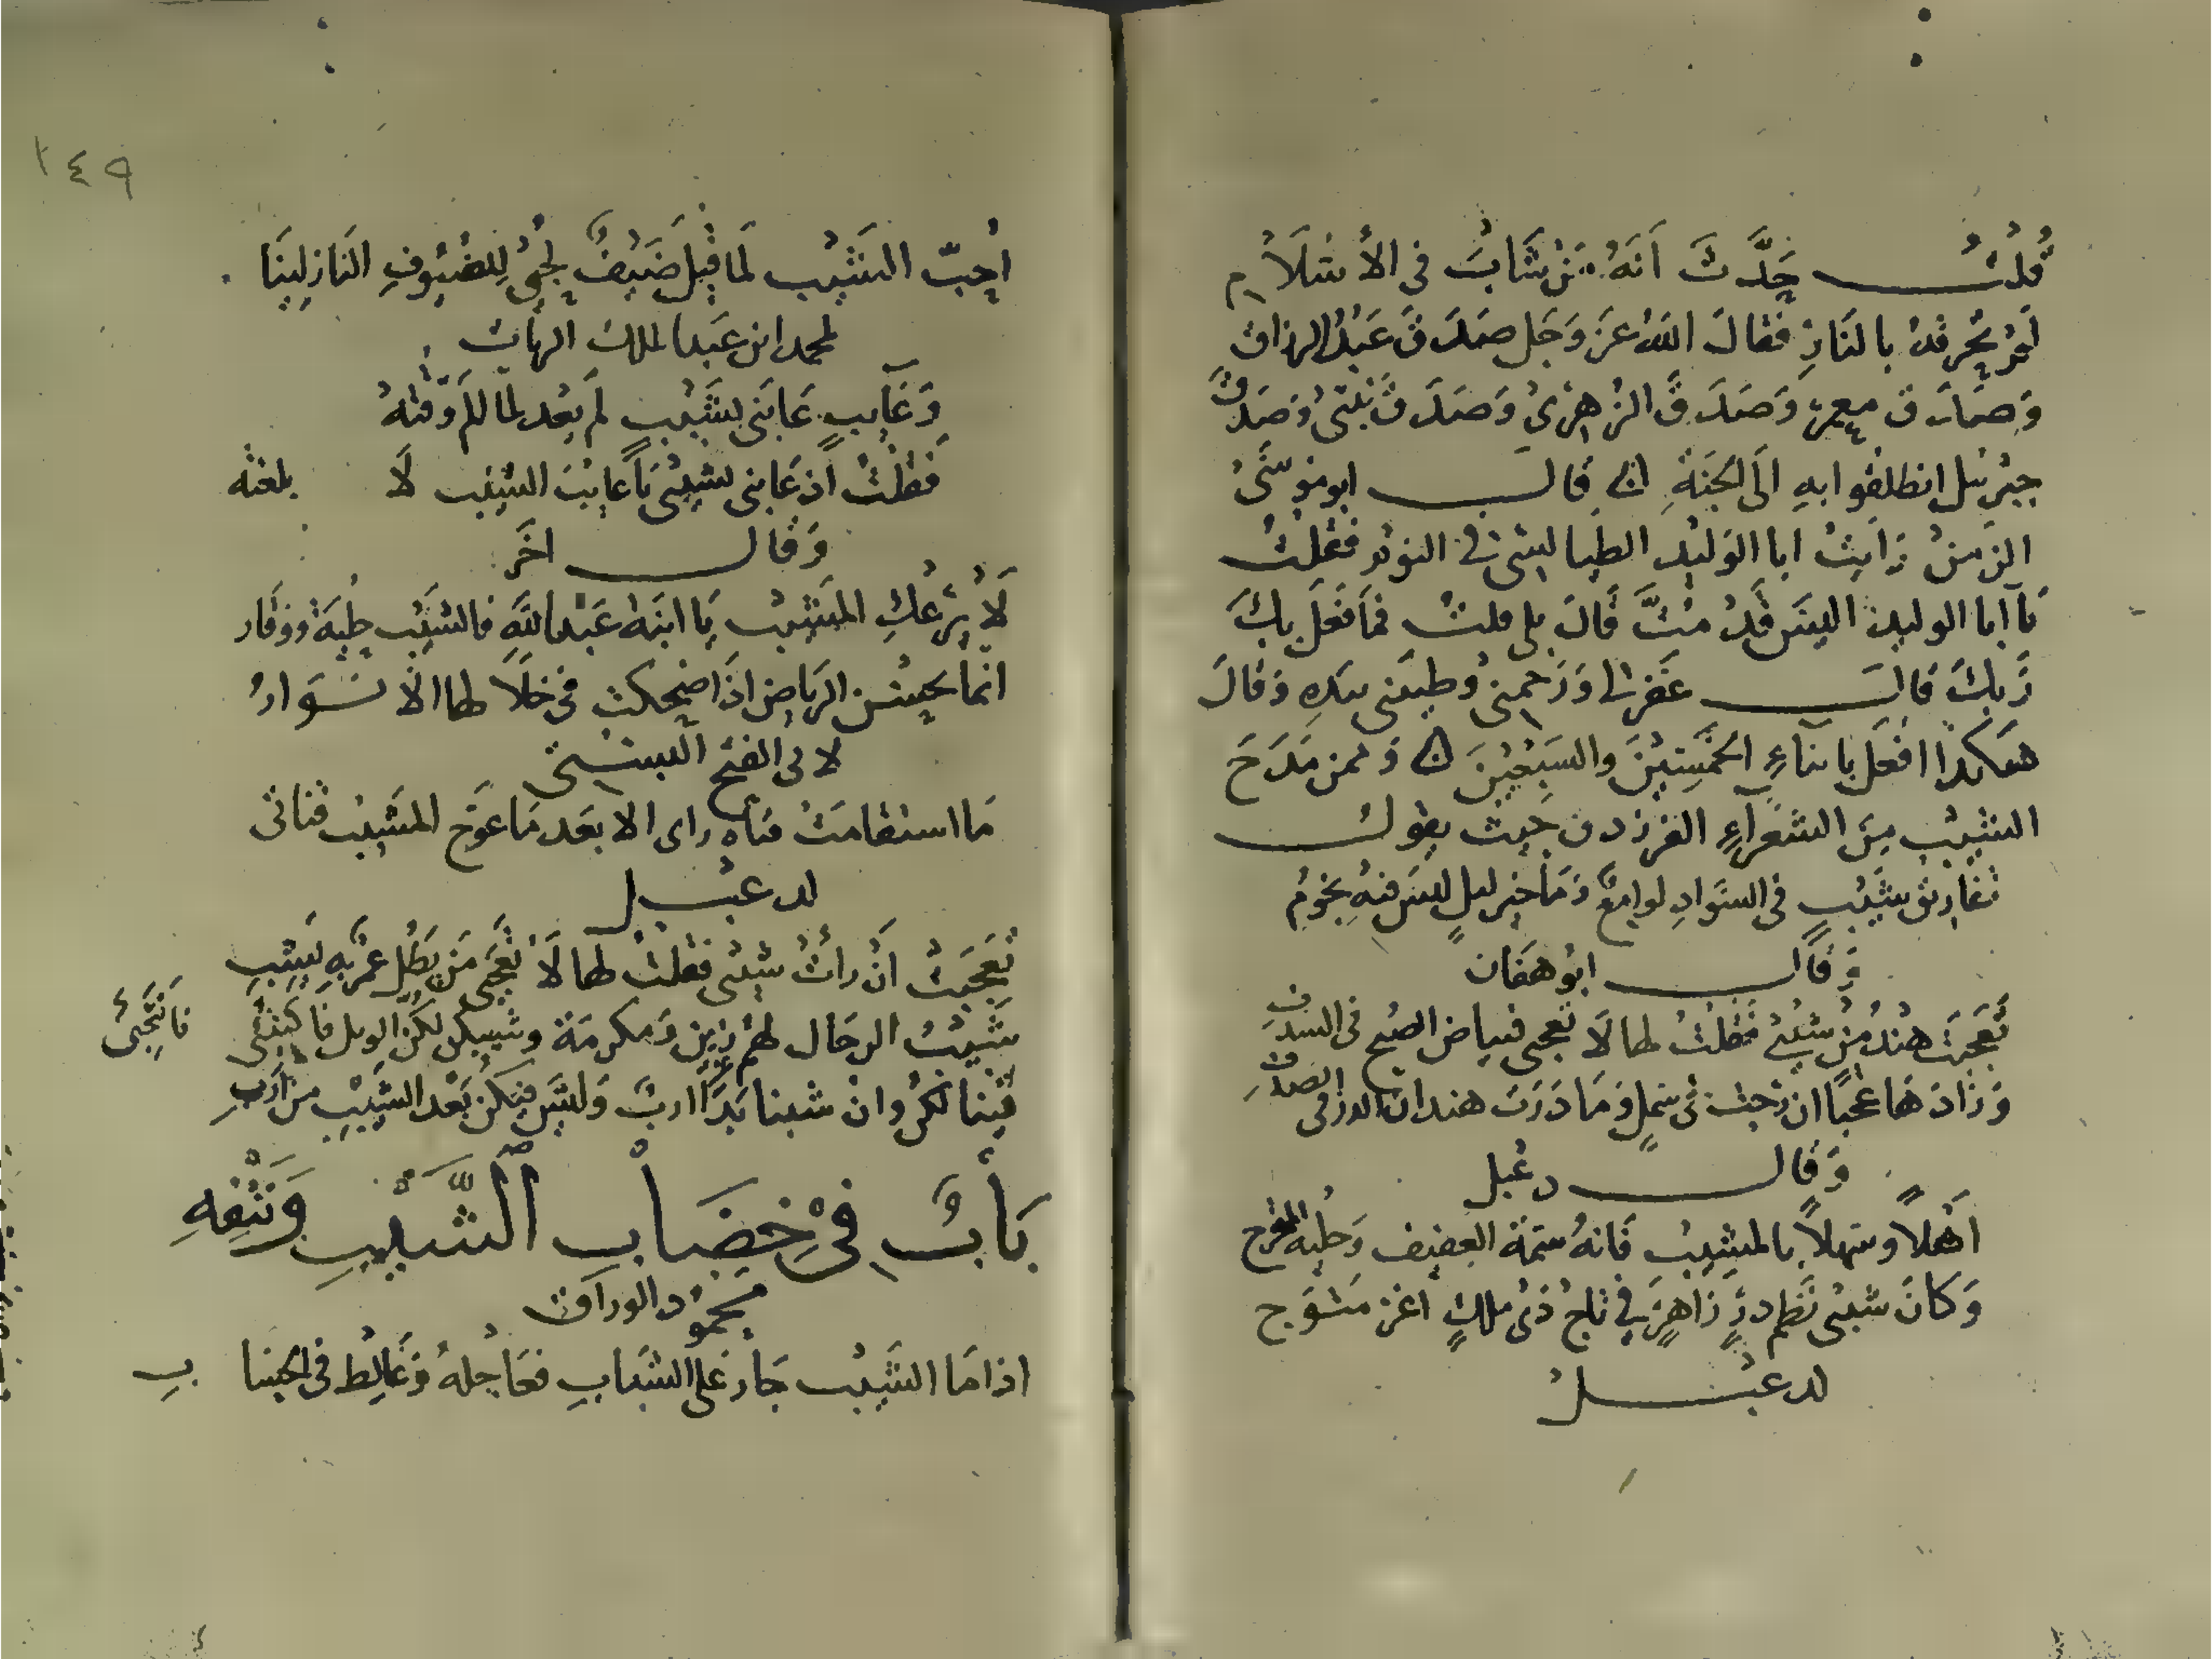 قُلْتُ حَدَّثَ اَنَهُ مَنْ شَابَ فى الأسْلَامِ
لَمْ تُحرقهُ بالنَارِ فقالَ اللهُ عَزَ وَجَل صَدَقَ عَبْدُ الرزاق
وَصَدَق معمر وَصَدَقَ الزُهرىُ وَصَدَقَ نبَيى وصَدَقَ
جبْرئيل انطلقوا بهِ الَى الجَنَةِ قالَ ابو موسَىُ
الزمنُ رَايتُ ابا الوَليْد الطيالسى فى النوْم فقلتُ
يَا ابا الوليد اليسَ قَدْ مُتَّ قَالَ بلى قلتُ فمَا فَعَلَ بِكَ
رَبكَ قالَ غَفر لى وَرَحمنى وطيبَنى بيَدِهِ وَقالَ
هَكذا افعَل بابناءِ الخمَسِيْنَ والسَبْعِيْنَ وَممن مَدَحَ
الشَيْبَ مِنَ الشعَرآءِ الفرزدق حَيثُ يقول
تفاريق شَيْبٍ فى السَوَادِ لوامِعٌ وَمَا خير ليلٍ ليسَ فيهِ نجُومُ
وَقالَ ابُو هفَان
تَعَجبَتْ هنْدُ مِنْ شيْبى فقلتُ لها لَا تعجبى فبياض الصبْح فى السدَفِ
وَزَادَهَا عَجَبًا ان رُحْتُ فى سَمَلٍ وَمَا دَرَتْ هند ان الدر فى الصدَفِ
وَقالَ دعْبل
اَهْلًا وسَهلًا بالمشيْبِ فَانهُ سِمَةُ العفيف وَحليْه المتحرج
وَكانَ شيْبى نَظم درٍ زَاهِرٍ فِى تاج ذىْ ملكٍ اغر مُتوَج
لدعبْلُ
١٤٩
اُحِبّ الشَيْبَ لَما قِيْلَ ضَيْفٌ لحُبىُ لِلضيُوفِ النَازِلينَا
لمحمد ابن عَبد الملك الزيات
وَعَآيبٍ عَابَنى بشَيْبٍ لَم يَعْد لما المَ وَقتهُ
فَقُلْتُ اذ عَابنى بشيْبى يَا عايِبَ الشَيْب لَا بلغته
وَقالَ اخَر
لَا يَرُعْكِ المَشيْبُ يَا ابنَة عَبْد اللَهِ فالشَيْب حِليَة ووقَار
انمَا تحسُن الرِيَاض اذَا ضحكت فى خلَالها الانْوَارُ
لابى الفتح البستى
مَا استقامَتْ قناة راى الا بعَد مَا عوَج المَشيْبُ قناتى
لدعبْل
تَعَجبَتْ اَنْ رأتْ شيْبى فقلتُ لها لَا تَعْجَبى مَن يَطُل عمْر بهِ يَشِبِ
شَيْبُ الرجَال لهُم زيْن وَمكرمَة وشيبكن لكُنّ الويل فاكتئبى فَانتَحِبىْ
فِينا لكُنّ وانْ شيب بَدَا اربٌ وَليْسَ فيكنّ بَعْد الشَيْبِ من اَرَبِ
بَابٌ فِىْ خِضَابِ ٱلشَّيْبِ وَنَتْفِهِ
محَموْد الوراق
اذا مَا الشَيْبُ جَارَ عَلى الشبَابِ فعَاجِلهُ وَغالِط فى الحِسَابِ